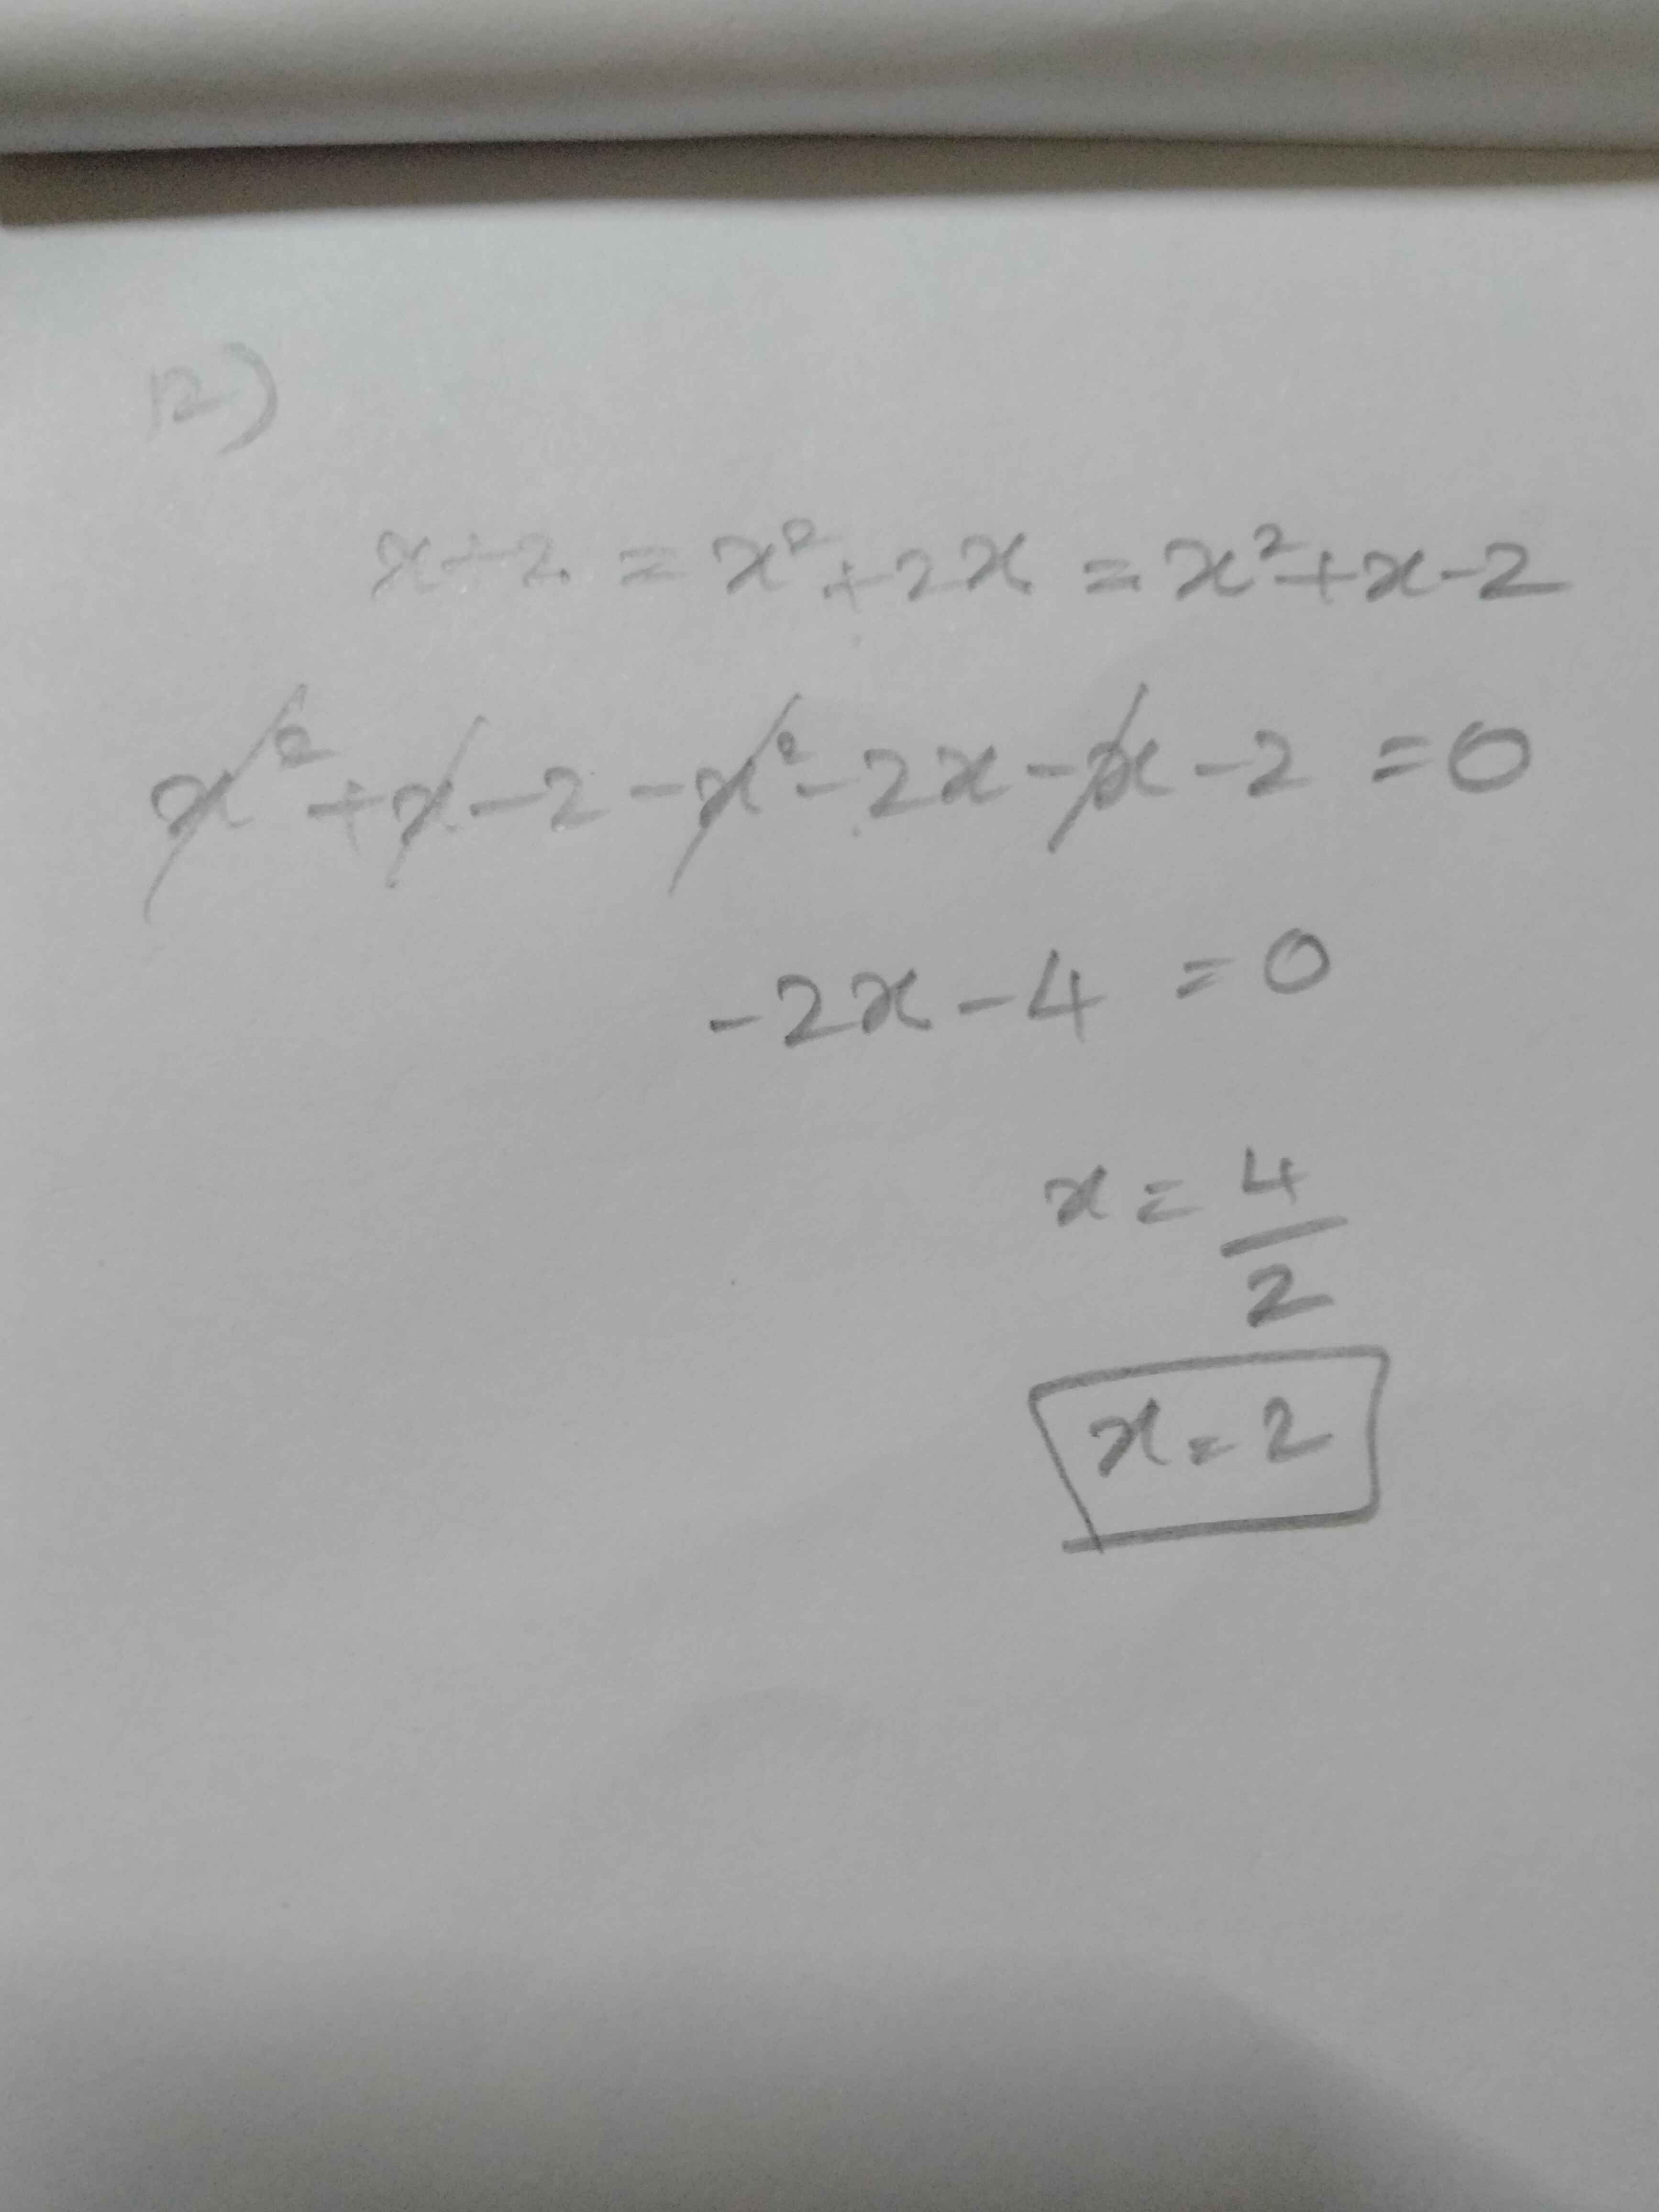 12)
x+2 = x²+2x = x²+x-2
x²+x-2-x²-2x-x-2 = 0
-2x-4 = 0
x = 4/2
x = 2